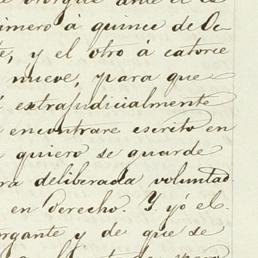 otorgué ante el
rimero à quince de Oc
te, y el otro a catorce
nueve, para que
extrajudicialmente
encontrare escrito en
quiero se guarde
ra deliberada voluntad
en derecho. Y yó el
organte y de que se